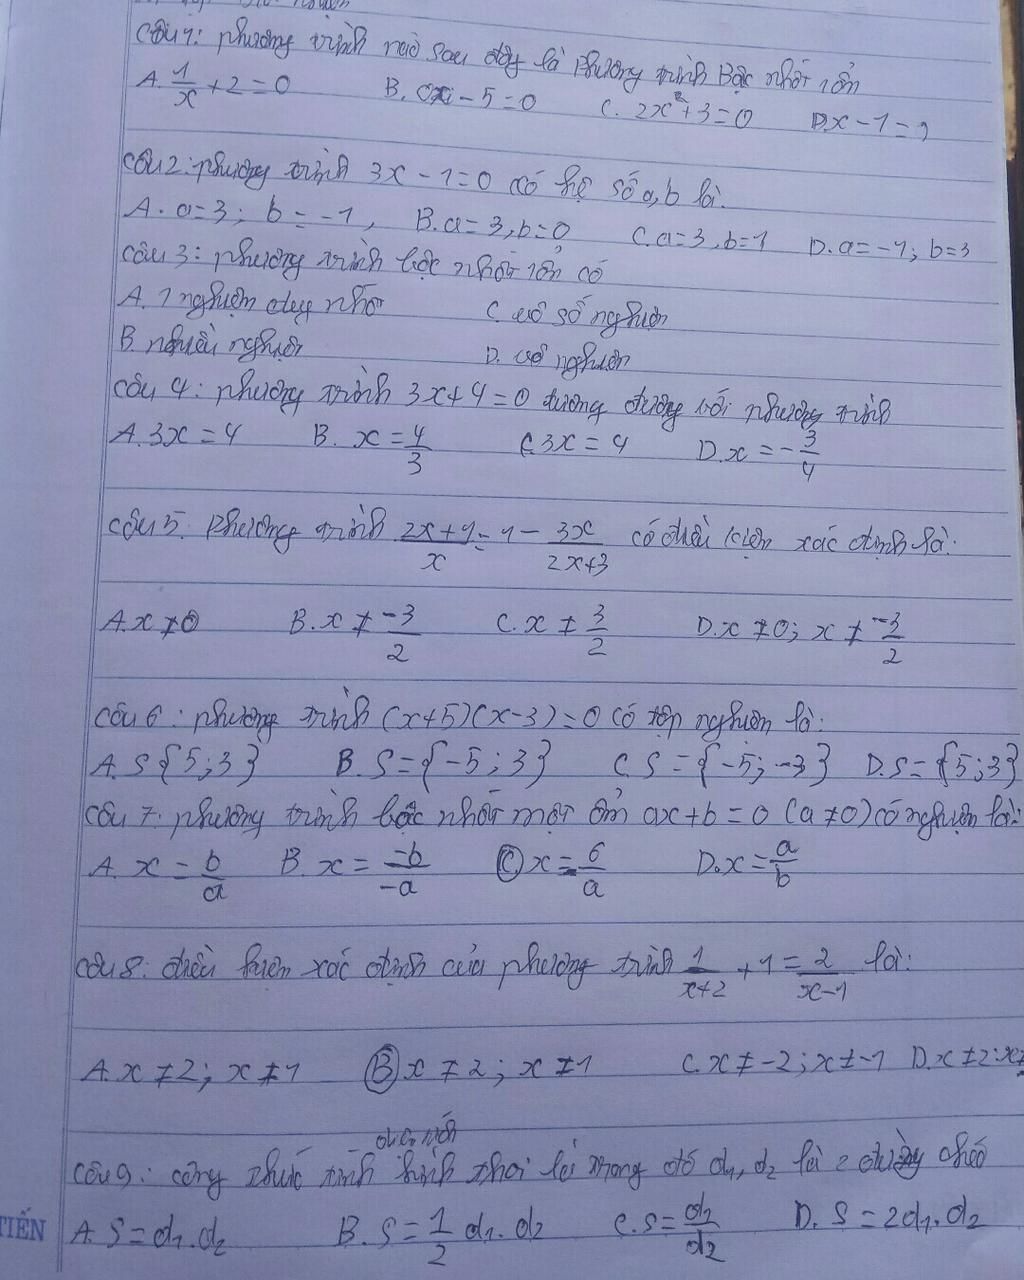 Câu 1: phương trình nào sau đây là phương trình Bậc nhất 1 ẩn
A. 1/x + 2 = 0 B. 0x - 5 = 0 C. 2x² + 3 = 0 D. x - 1 =
Câu 2: phương trình 3x - 1 = 0 có hệ số a, b là.
A. a = 3; b = -1, B. a = 3, b = 0 C. a = 3, b = 1 D. a = -1; b = 3
Câu 3: phương trình bậc nhất 1 ẩn có
A. 1 nghiệm duy nhất C. vô số nghiệm
B. nhiều nghiệm D. vô nghiệm
Câu 4: phương trình 3x + 4 = 0 tương đương với phương trình
A. 3x = 4 B. x = 4/3 C. 3x = 4 D. x = -3/4
Câu 5. Phương trình (2x + 1)/x = 1 - 3x/(2x + 3) có điều kiện xác định là:
A. x ≠ 0 B. x ≠ -3/2 C. x ≠ 3/2 D. x ≠ 0; x ≠ -3/2
Câu 6: phương trình (x + 5)(x - 3) = 0 có tập nghiệm là:
A. S {5; 3} B. S = {-5; 3} C. S = {-5; -3} D. S = {5; 3}
Câu 7: phương trình bậc nhất một ẩn ax + b = 0 (a ≠ 0) có nghiệm là:
A. x = b/a B. x = -b/-a C. x = b/a D. x = a/b
Câu 8: điều kiện xác định của phương trình 1/(x + 2) + 1 = 2/(x - 1) là:
A. x ≠ 2; x ≠ 1 B. x ≠ 2; x ≠ 1 C. x ≠ -2; x ≠ -1 D. x ≠ 2; x ≠
diện tích
Câu 9: công thức tính hình thoi là trong đó d1, d2 là 2 đường chéo
A. S = d1.d2 B. S = 1/2 d1.d2 C. S = d1/d2 D. S = 2d1.d2
TIẾN